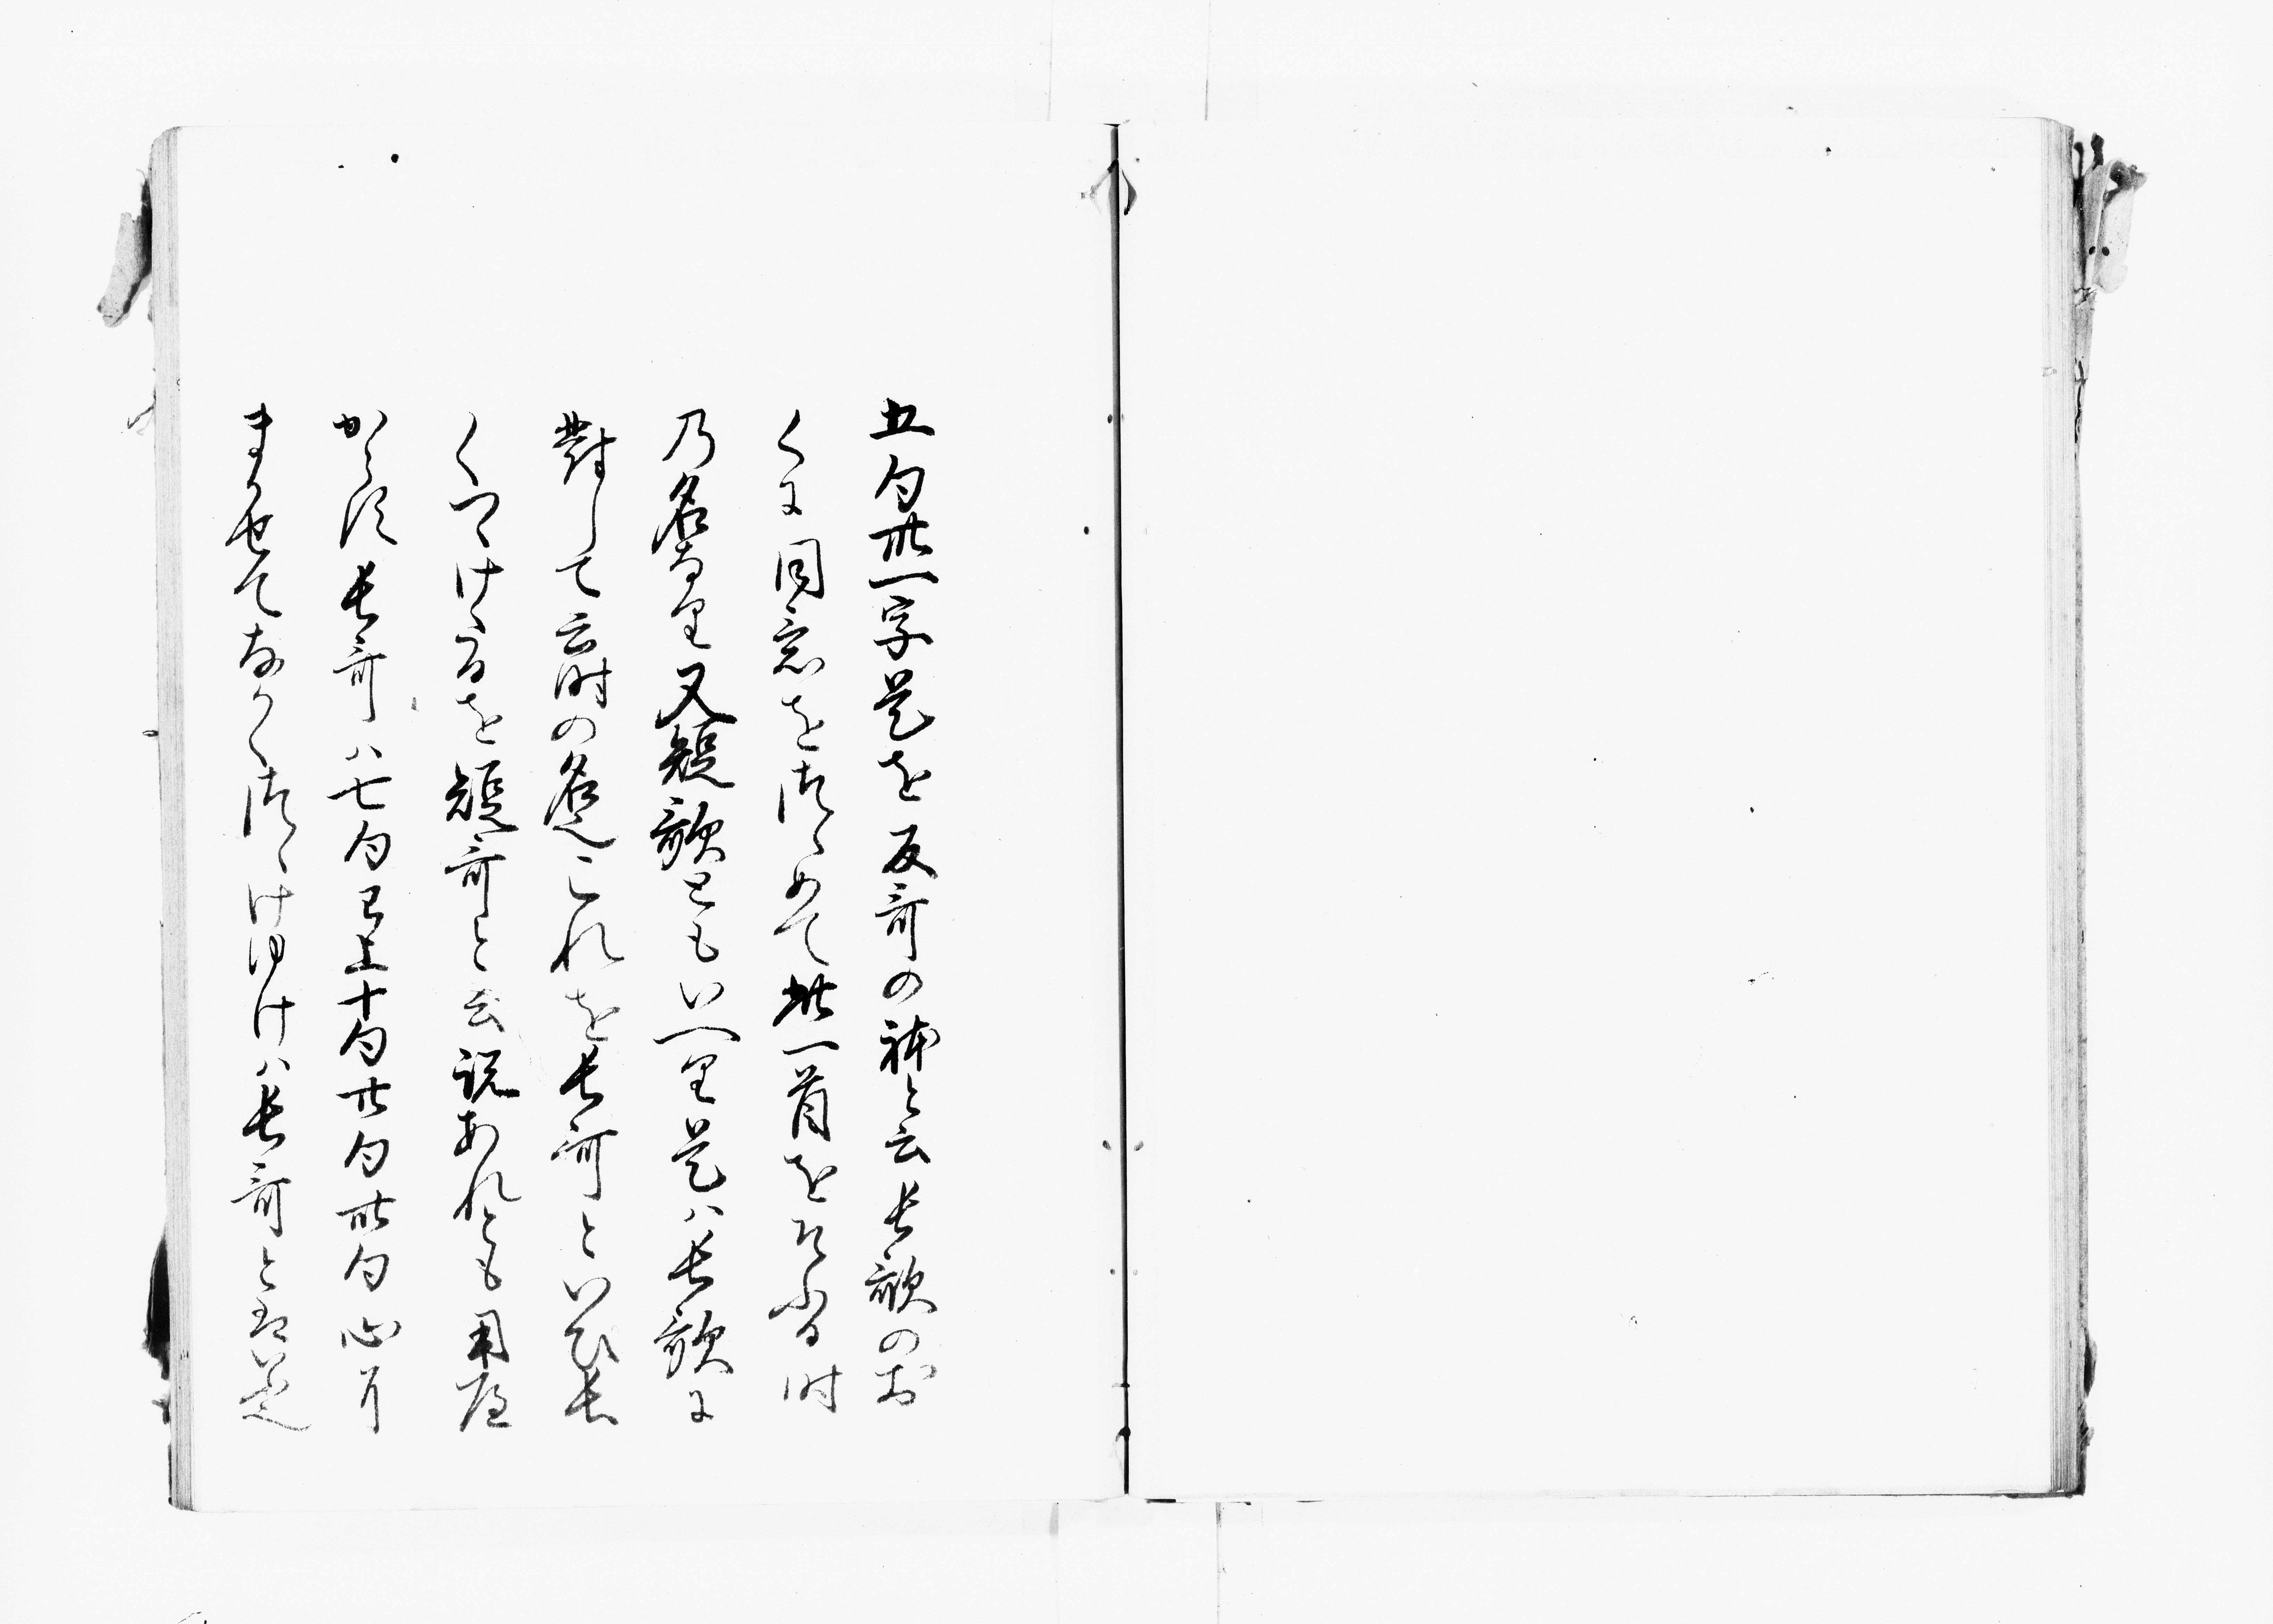 五句卅一字是を反哥の躰と云長歌のお
くに同意をつゝめて此一首をそふる時
乃名なり又短歌ともいへり是ハ長歌に
對して云時の名也これを長哥といひ長
くつゝけるを短哥と云説あれとも用
からす長哥ハ七句已上十句廿句卅句心に
まかせてなかくつゝけゆけハ長哥とハいふ也